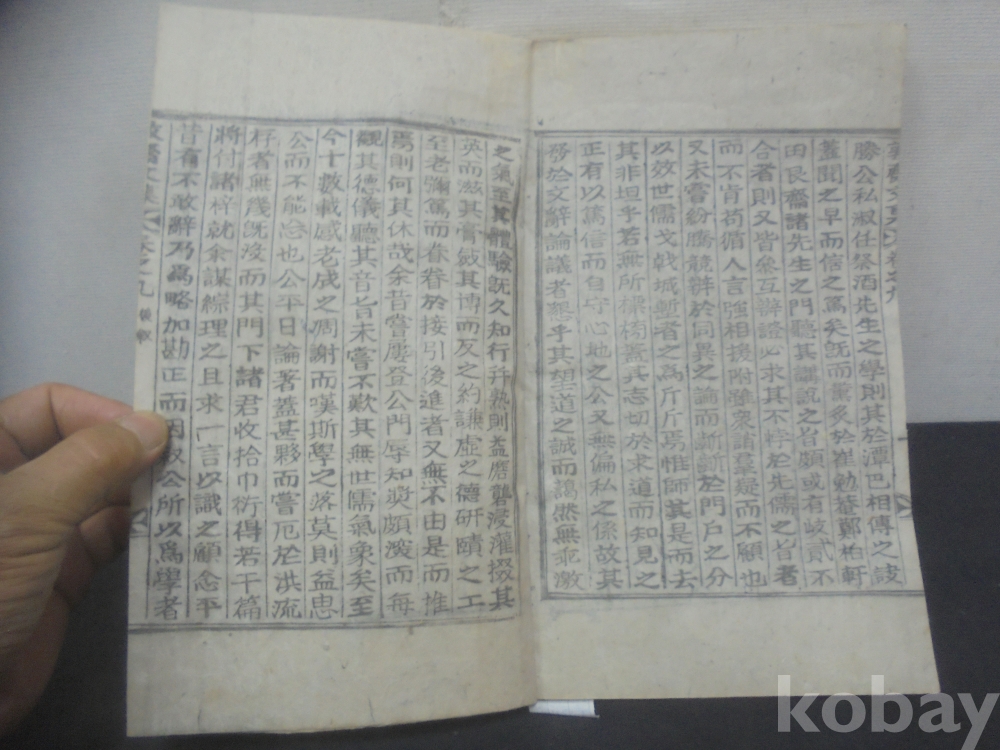 勝公私淑任祭酒先生之學則其於潭巴相傳之訣
蓋聞之早而信之篤矣旣而薰炙於崔勉菴鄭柏軒
田艮齋諸先生之門聽其講說之旨頗或有岐貳不
合者則又皆參互辯證必求其不悖於先儒之旨者
而不肯苟循人言強相援附雖衆諸羣疑而不顧也
又未嘗紛騰競辨於同異之論而斷斷於門戶之分
以效世儒戈戟城塹者之爲斤斤焉惟師其是而去
其非坦乎若無所標椅蓋其志切於求道而知見之
正有以篤信而自守心地之公又無偏私之係故其
發於文辭論議者懇乎其望道之誠而藹然無乖激
之氣至其體驗旣久知行幷熟則益磨礱浸灌掇其
英而滋其膏斂其博而反之約謙虛之德硏賾之工
至老彌篤而眷眷於接引後進者又無不由是而推
焉則何其休哉余昔嘗屢登公門辱知奬頗深而每
觀其德儀聽其音旨未嘗不歎其無世儒氣象矣至
今十數載感老成之凋謝而嘆斯學之落莫則益思
公而不能忘也公平日論著蓋甚夥而嘗厄於洪流
存者無幾旣沒而其門下諸君收拾巾衍得若干篇
將付諸梓就余謀綜理之且求一言以識之顧念平
昔有不敢辭乃爲略加勘正而因叙公所以爲學者
文集 卷之九
kobay